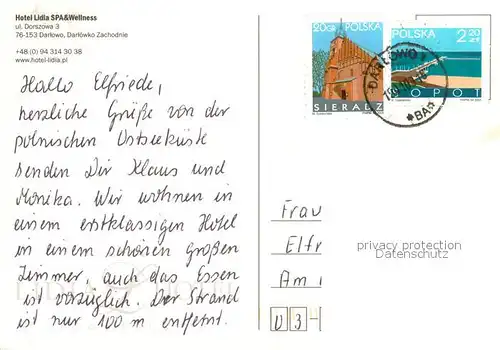 Hotel Lidia SPA&Wellness
ul. Dorszowa 3
76-153 Darłowo, Darłówko Zachodnie
+48 (0) 94 314 30 38
www.hotel-lidia.pl
Hallo Elfriede,
herzliche Grüße von der
polnischen Ostseeküste
senden Dir Klaus und
Monika. Wir wohnen in
einem erstklassigen Hotel
in einem schönen großen
Zimmer, auch das Essen
ist vorzüglich. Der Strand
ist nur 100 m entfernt.
LIDIA HOTEL
20GR POLSKA
SIERADZ
POLSKA 2,20 ZŁ
SOPOT
DARŁOWO 1
*BA*
Frau
Elfr
Am
privacy protection
Datenschutz
0 3